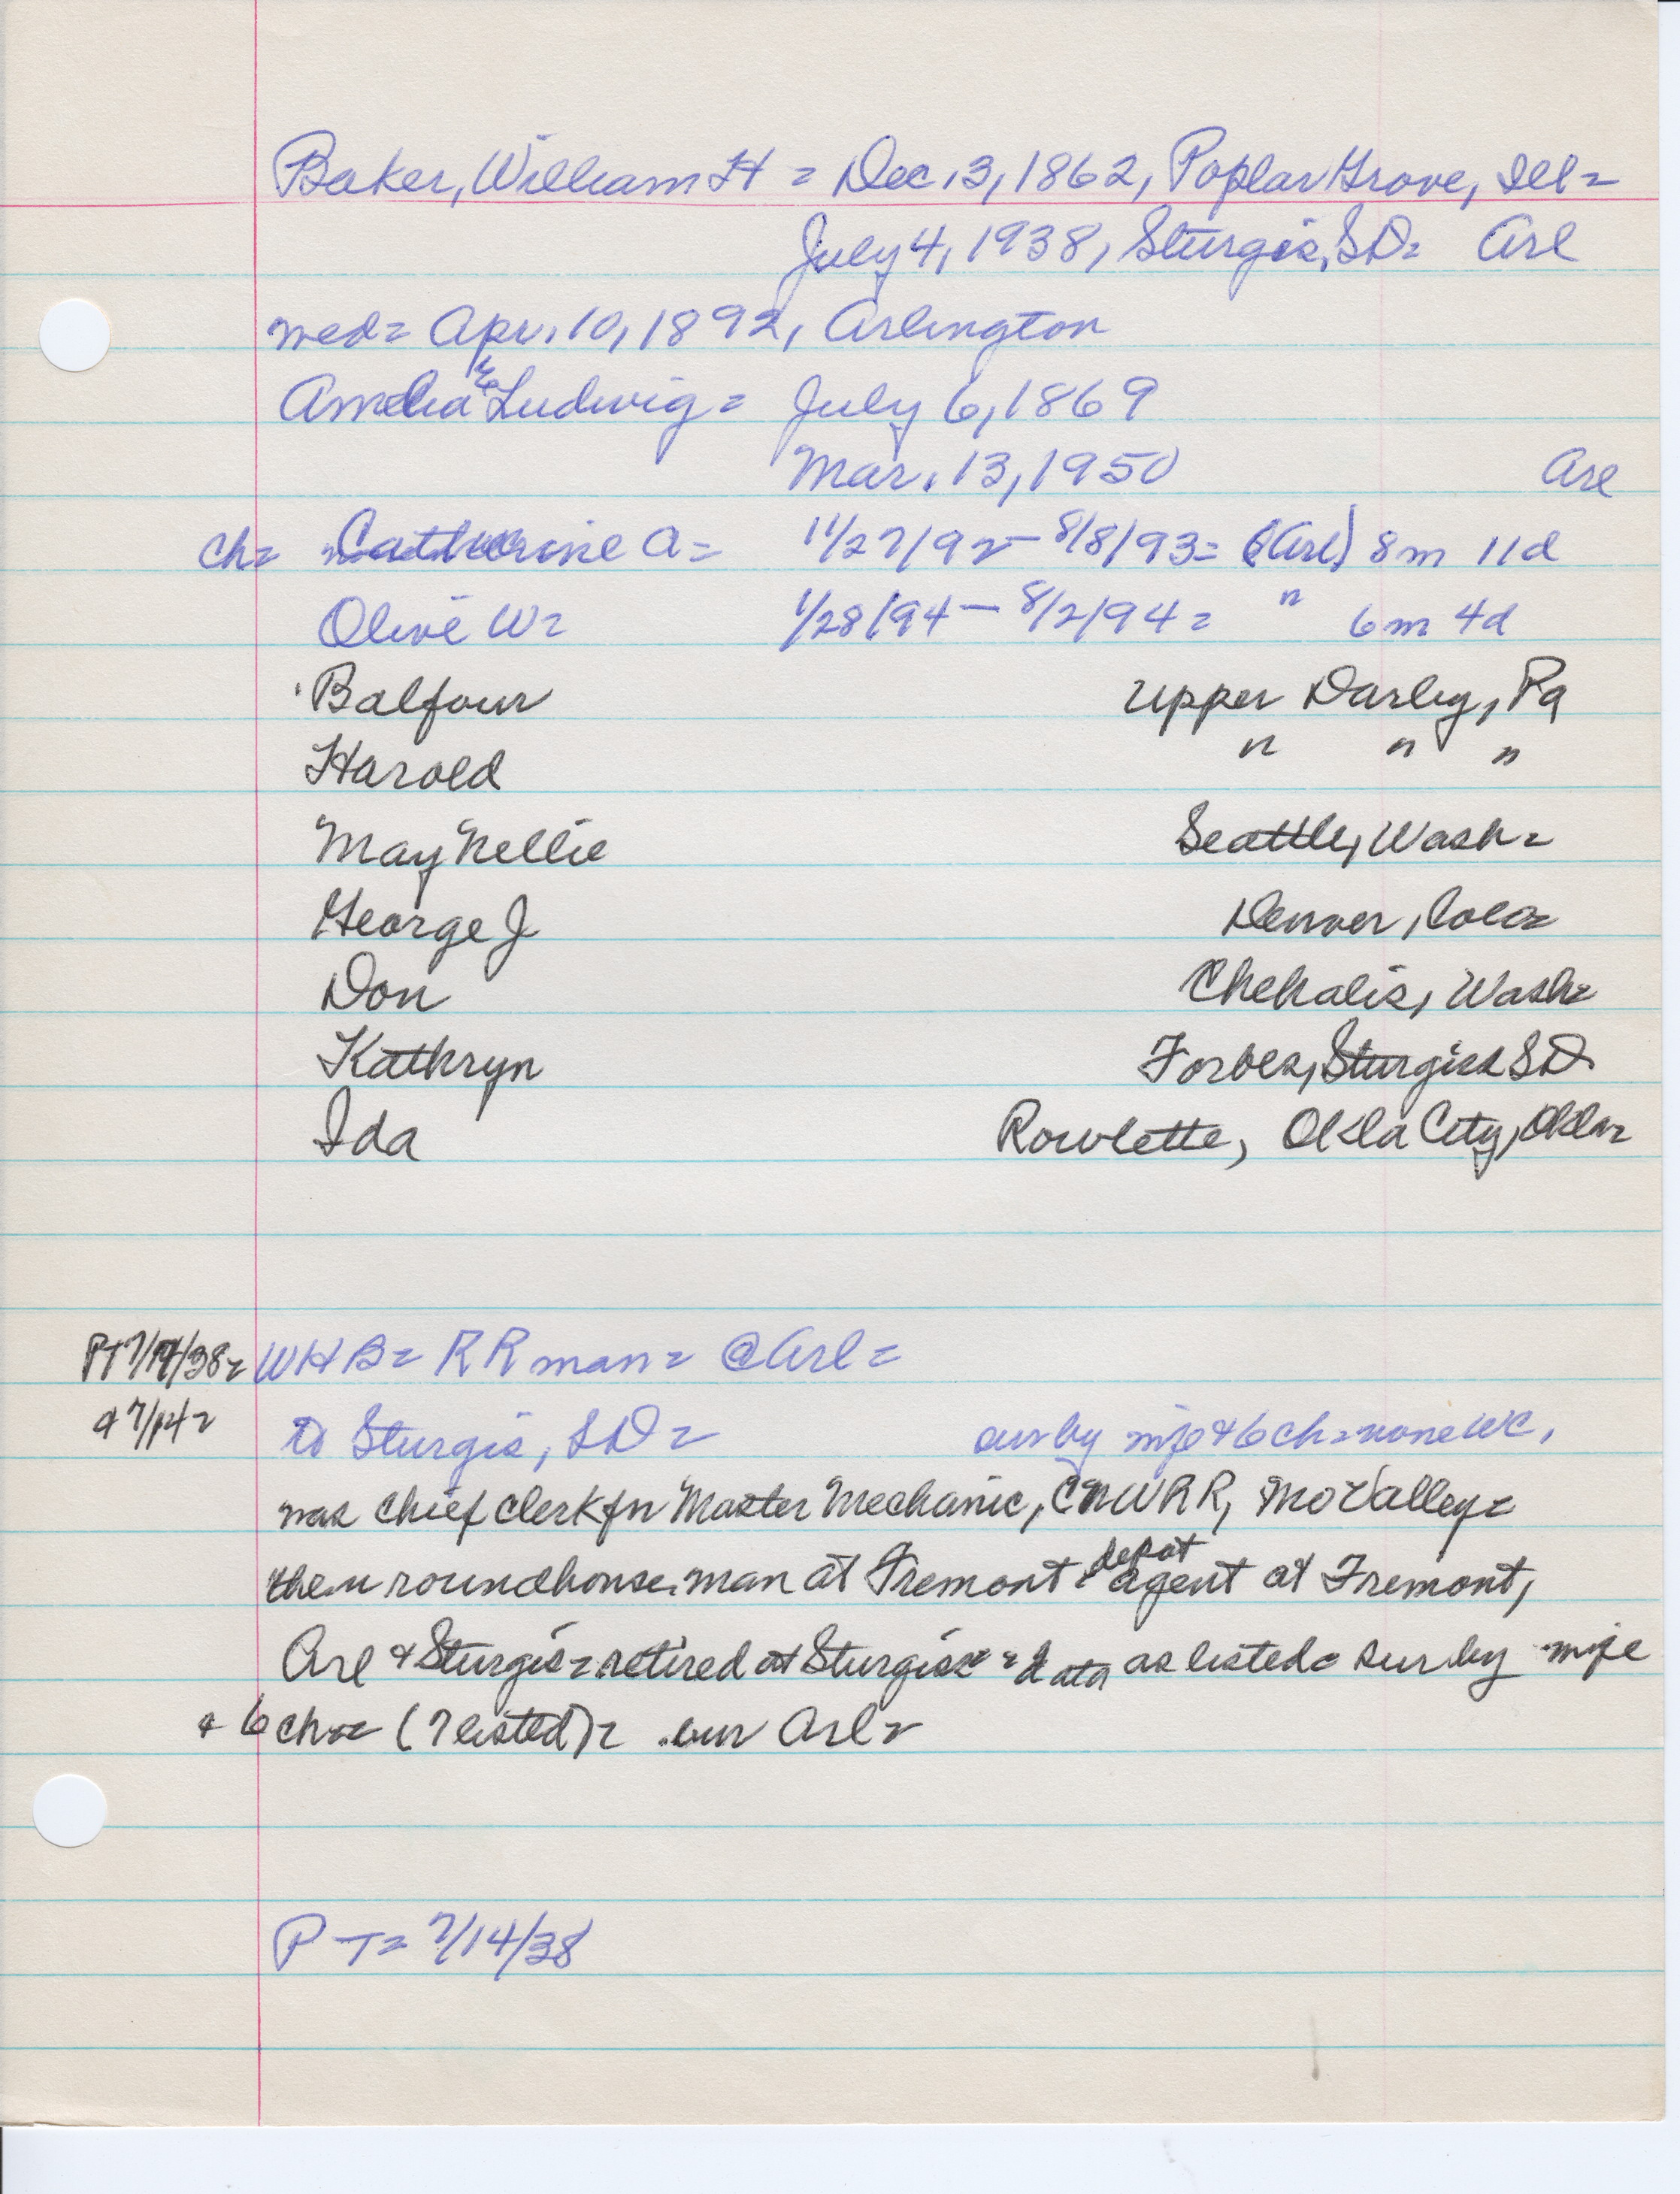 Baker, William H = Dec. 3, 1862, Poplar Grove, Ill =
July 4, 1938, Sturgis, SD = Arl
wed = Apr. 10, 1892, Arlington
Amelia E Ludwig = July 6, 1869
Mar. 13, 1950 Arl
ch = Catherine A = 11/27/92 – 8/8/93 = (Arl) 8m 11d
Olive W = 1/28/94 – 8/2/94 = " 6m 4d
Balfour Upper Darby, Pa
Harold " " "
May Nellie Seattle, Wash =
George J Denver, Colo =
Don Chehalis, Wash =
Kathryn Forbes, Sturgis SD
Ida Rowlette, Okla City, Okla =
PT 7/14/38 = WHB = RR man = @ Arl =
& 7/14 = to Sturgis, SD = sur by wife & 6 ch = none WC,
was chief clerk for Master Mechanic, CNWRR, Mo Valley =
then roundhouse man at Fremont & depot agent at Fremont,
Arl & Sturgis = retired at Sturgis = data as listed = sur by wife
& 6 ch = (7 listed) = bur Arl =
PT = 7/14/38